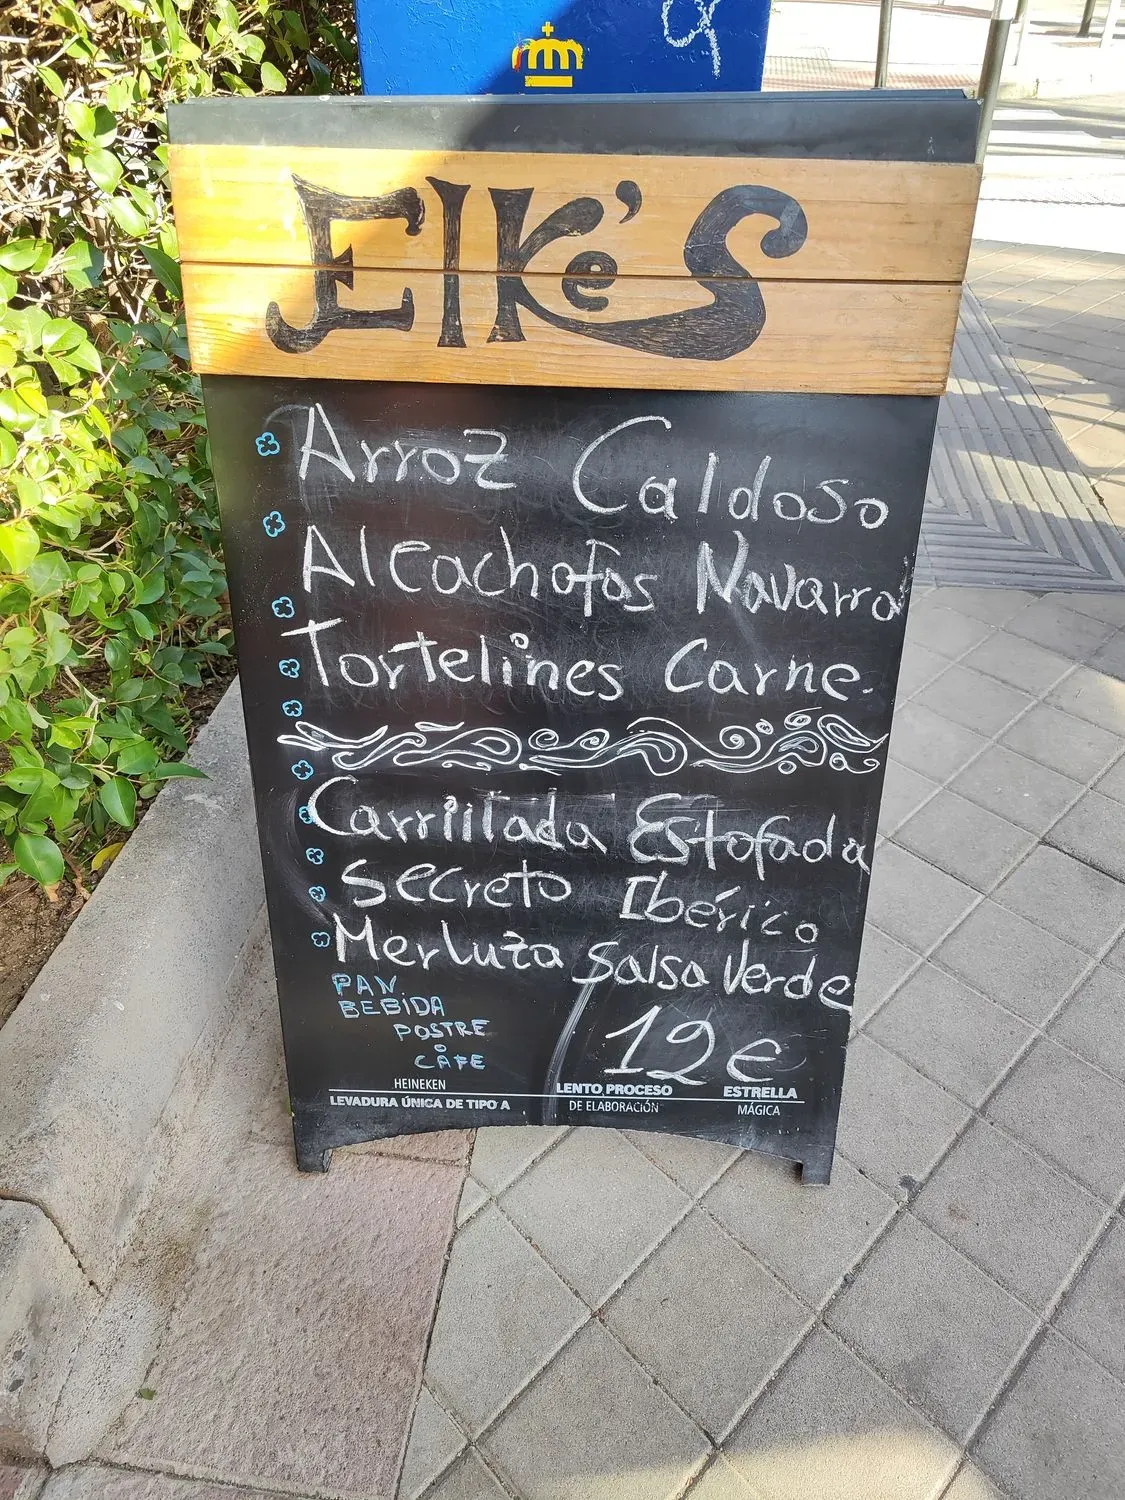 Elke's
Arroz Caldoso
Alcachofas Navarra
Tortelines Carne.
Carrillada Estofada
Secreto Ibérico
Merluza Salsa Verde
PAN
BEBIDA
POSTRE
O
CAFE
12€
HEINEKEN
LEVADURA ÚNICA DE TIPO A
LENTO PROCESO
DE ELABORACIÓN
ESTRELLA
MÁGICA